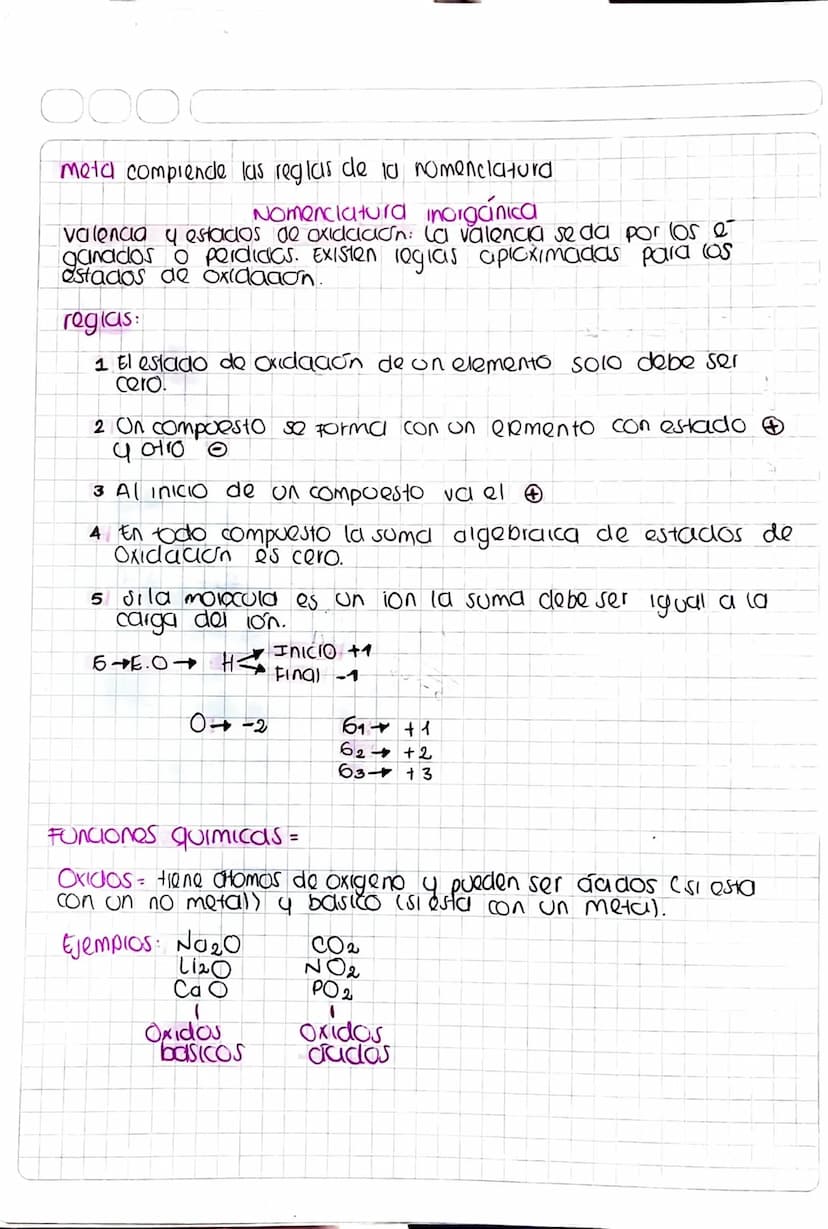 meta comprende las reglas de la nomenclatura
Nomenclatura inorgánica
valencia y estados de oxidación: la valencia se da por los e-
ganados o perdidos. Existen reglas aproximadas para los
estados de oxidación.
reglas:
1 El estado de oxidación de un elemento solo debe ser
cero.
2 Un compuesto se forma con un elemento con estado ⊕
y otro ⊖
3 Al inicio de un compuesto va el ⊕
4 En todo compuesto la suma algebraica de estados de
Oxidación es cero.
5 Si la molecula es un ion la suma debe ser igual a la
carga del ión.
6→E.O→ H Inicio +1
Final -1
O→ -2 G1→ +1
G2→ +2
G3→ +3
Funciones quimicas=
Oxidos= tiene atomos de oxigeno y pueden ser ácidos (si esta
con un no metal) y basico (si esta con un metal).
Ejemplos: Na2O CO2
Li2O NO2
CaO PO2
Oxidos Oxidos
basicos ácidos